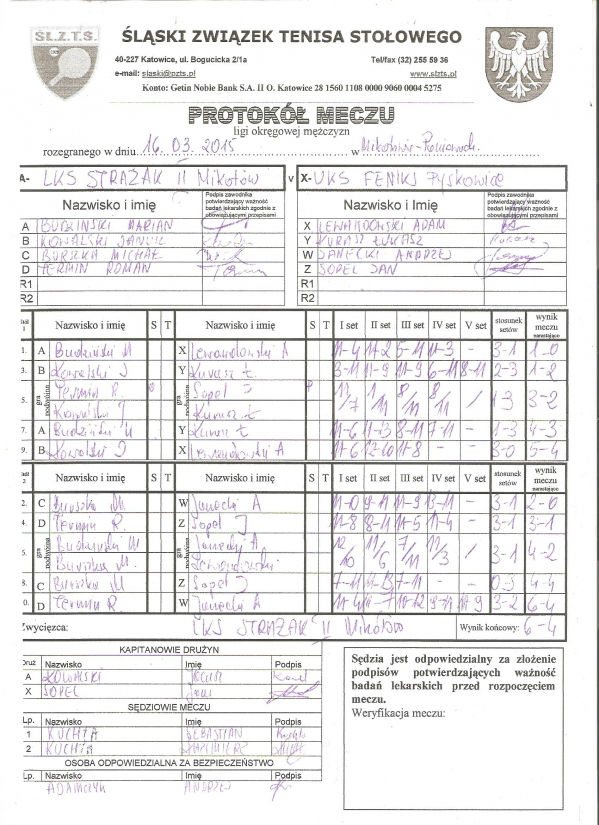 ŚL.Z.T.S.
ŚLĄSKI ZWIĄZEK TENISA STOŁOWEGO
40-227 Katowice, ul. Bogucicka 2/1a Tel/fax (32) 255 59 36
e-mail: slaski@pzts.pl www.slzts.pl
Konto: Getin Noble Bank S.A. II O. Katowice 28 1560 1108 0000 9060 0004 5275
PROTOKÓŁ MECZU
ligi okręgowej mężczyzn
rozegranego w dniu 16.03.2015 w
A- LKS STRAŻAK II Mikołów v X- UKS FENIKS Pyskowice
Nazwisko i Imię Podpis zawodnika potwierdzający ważność badań lekarskich zgodnie z obowiązującymi przepisami Nazwisko i Imię Podpis zawodnika potwierdzający ważność badań lekarskich zgodnie z obowiązującymi przepisami
A BUDZIŃSKI MARIAN X LEWANDOWSKI ADAM
B KOWALSKI Y KURASZ ŁUKASZ
C BURSZKA MICHAŁ W JANECKI ANDRZEJ
D TERMIN ROMAN Z SOPEL JAN
R1 R1
R2 R2
Nazwisko i imię S T Nazwisko i imię S T I set II set III set IV set V set stosunek setów wynik meczu narastająco
1. A Budziński M X Lewandowski A 11-4 11-2 5-11 11-3 - 3-1 1-0
3. B Kowalski J Y Kurasz Ł 3-11 11-9 11-9 6-11 8-11 2-3 1-2
5. gra podwójna Termin R. Sopel J 1-3 3-2
Kowalski J Kurasz Ł
7. A Budziński M Y Kurasz Ł 11-6 11-13 8-11 7-11 - 1-3 4-3
9. B Kowalski J X Lewandowski A 11-6 12-10 11-8 - - 3-0 5-4
Nazwisko i imię S T Nazwisko i imię S T I set II set III set IV set V set stosunek setów wynik meczu narastająco
2. C Burszka M. W Janecki A 11-0 9-11 11-9 13-11 - 3-1 2-0
4. D Termin R. Z Sopel J 11-8 8-11 11-5 11-4 - 3-1 3-1
6. gra podwójna Budziński M Janecki A 12/10 11/6 7/11 11/3 / 3-1 4-2
Burszka M. Lewandowski
8. C Burszka M. Z Sopel J 7-11 7-11 - - 0-3 4-4
0. D Termin R. W Janecki A 11-4 10-12 9-11 11-9 3-2 6-4
Zwycięzca: LKS STRAŻAK II Mikołów Wynik końcowy: 6-4
KAPITANOWIE DRUŻYN
Druż Nazwisko Imię Podpis
A KOWALSKI
X SOPEL Jan
SĘDZIOWIE MECZU
Lp. Nazwisko Imię Podpis
1 KUCHTA SEBASTIAN
2 KUCHTA KAZIMIERZ
OSOBA ODPOWIEDZIALNA ZA BEZPIECZEŃSTWO
Lp. Nazwisko Imię Podpis
ADAMCZYK ANDRZEJ
Sędzia jest odpowiedzialny za złożenie
podpisów potwierdzających ważność
badań lekarskich przed rozpoczęciem
meczu.
Weryfikacja meczu: